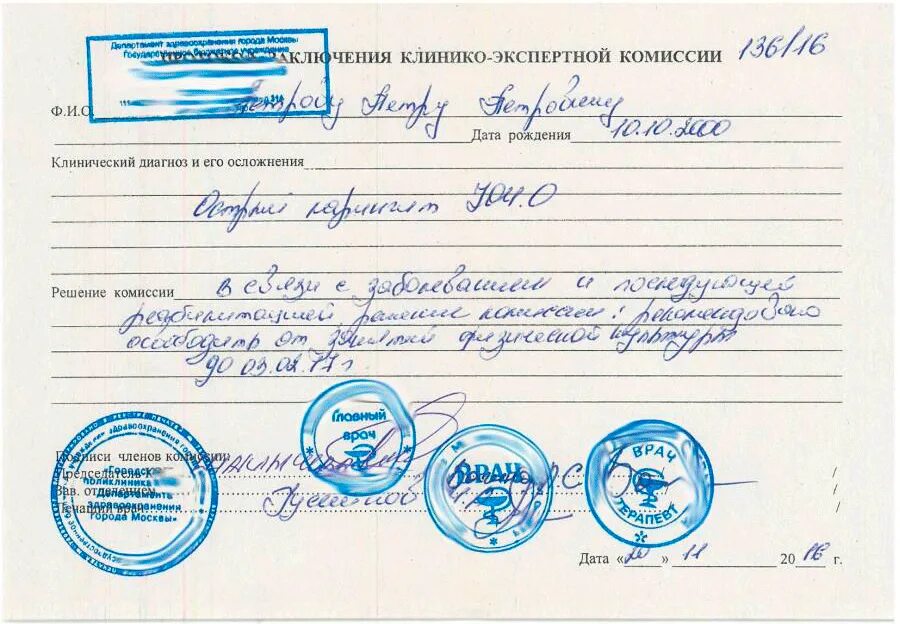 Департамент здравоохранения города Москвы
Государственное бюджетное учреждение
ЗАКЛЮЧЕНИЯ КЛИНИКО-ЭКСПЕРТНОЙ КОМИССИИ 136/16
Ф.И.О. Петрову Петру Петровичу
Дата рождения 10.10.2000
Клинический диагноз и его осложнения
Острый ларингит J04.0
Решение комиссии в связи с заболеванием и последующей
реабилитацией решение комиссии: рекомендовано
освободить от занятий физической культуры
до 03.02.17 г
Главный
врач
Подписи членов комиссии:
Председатель
Зав. отделением
Лечащий врач
«Городская
поликлиника
департамента
здравоохранения
города Москвы»
ВРАЧ
ВРАЧ
ТЕРАПЕВТ
Дата «20» 11 2016 г.